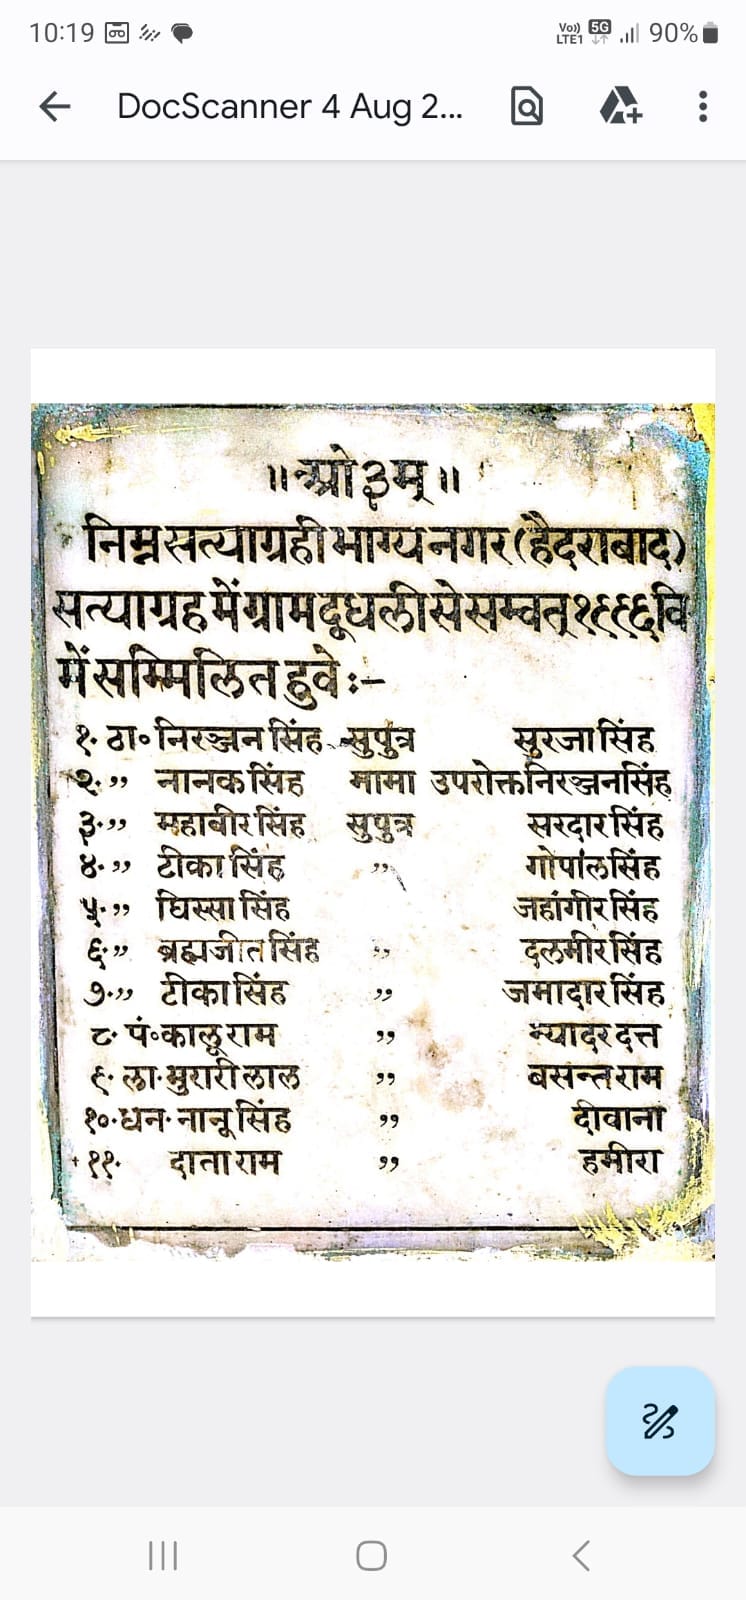 10:19 Vo)) LTE1 5G 90%
DocScanner 4 Aug 2...
॥ओ३म्॥
निम्न सत्याग्रही भाग्यनगर (हैदराबाद)
सत्याग्रह में ग्राम दूधली से सम्वत् १९९६ वि
में सम्मिलित हुवे :-
१. ठा० निरञ्जन सिंह सुपुत्र सुरजा सिंह
२. ,, नानक सिंह मामा उपरोक्त निरञ्जनसिंह
३. ,, महाबीर सिंह सुपुत्र सरदार सिंह
४. ,, टीका सिंह ,, गोपाल सिंह
५. ,, घिस्सा सिंह जहांगीर सिंह
६. ,, ब्रह्मजीत सिंह ,, दलमीर सिंह
७. ,, टीका सिंह ,, जमादार सिंह
८. पं० कालू राम ,, न्यादर दत्त
९. ला. मुरारी लाल ,, बसन्त राम
१०. धन. नानू सिंह ,, दीवाना
११. दाता राम ,, हमीरा